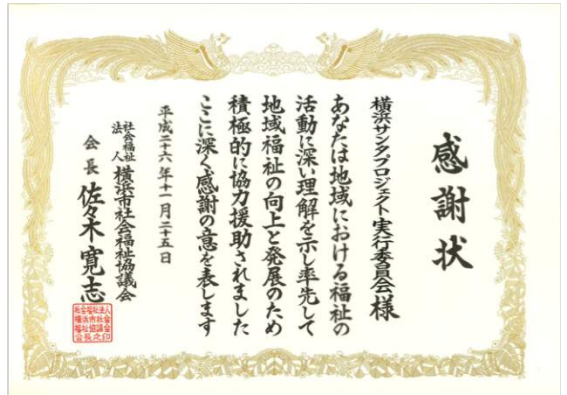 感謝状
横浜サンタプロジェクト実行委員会様
あなたは地域における福祉の
活動に深い理解を示し率先して
地域福祉の向上と発展のため
積極的に協力援助されました
ここに深く感謝の意を表します
平成二十六年十一月二十五日
社会福祉法人 横浜市社会福祉協議会
会長 佐々木寛志
社会福祉法人
横浜市社会
福祉協議会
会長之印